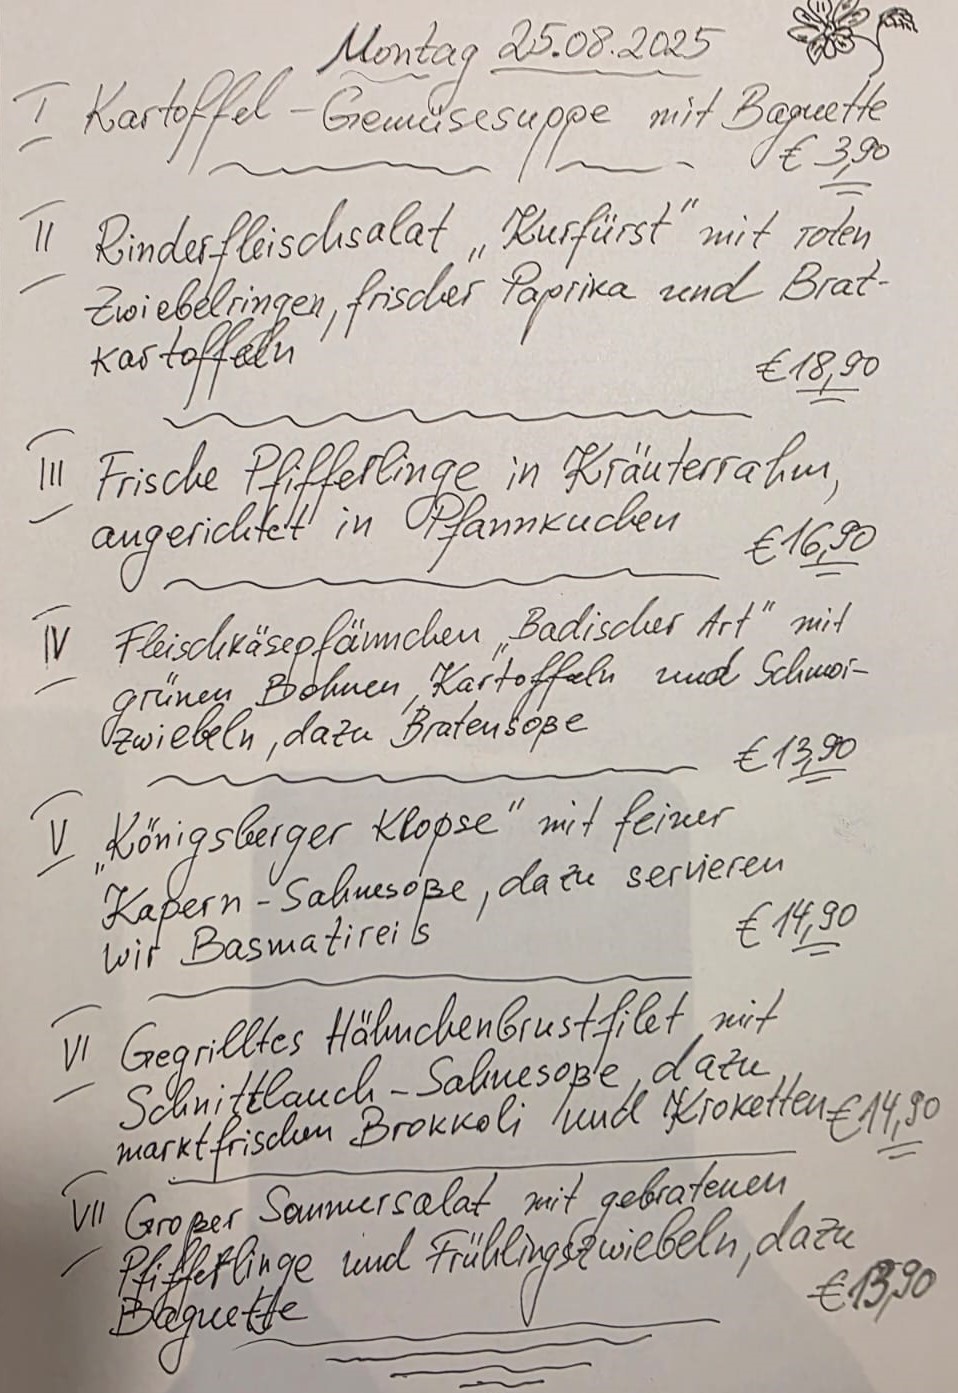 Montag 25.08.2025
I Kartoffel - Gemüsesuppe mit Baguette
€ 3,90
II Rinderfleischsalat „Kurfürst" mit roten
Zwiebelringen, frischer Paprika und Brat-
kartoffeln
€ 18,90
III Frische Pfifferlinge in Kräuterrahm,
angerichtet in Pfannkuchen
€ 16,90
IV Fleischkäsepfännchen „Badischer Art" mit
grünen Bohnen, Kartoffeln und Schmor-
zwiebeln, dazu Bratensoße
€ 13,90
V „Königsberger Klopse" mit feiner
Kapern - Sahnesoße, dazu servieren
wir Basmatireis
€ 14,90
VI Gegrilltes Hähnchenbrustfilet mit
Schnittlauch - Sahnesoße, dazu
marktfrischen Brokkoli und Kroketten € 14,90
VII Großer Sommersalat mit gebratenen
Pfifferlinge und Frühlingszwiebeln, dazu
Baguette
€ 13,90